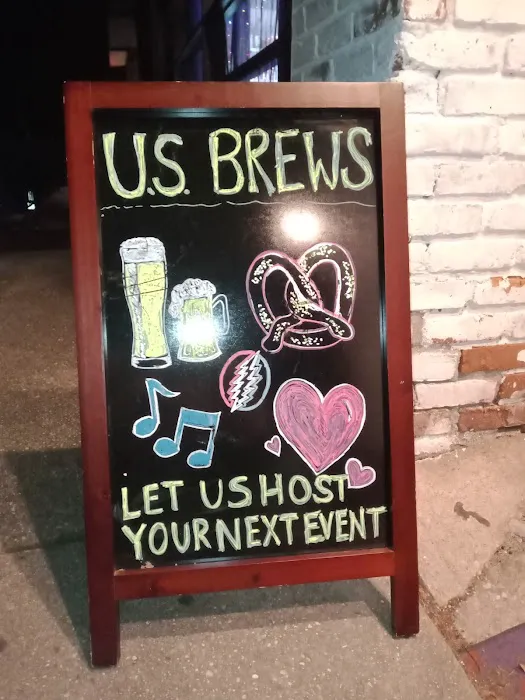 U.S. BREWS
LET US HOST
YOUR NEXT EVENT